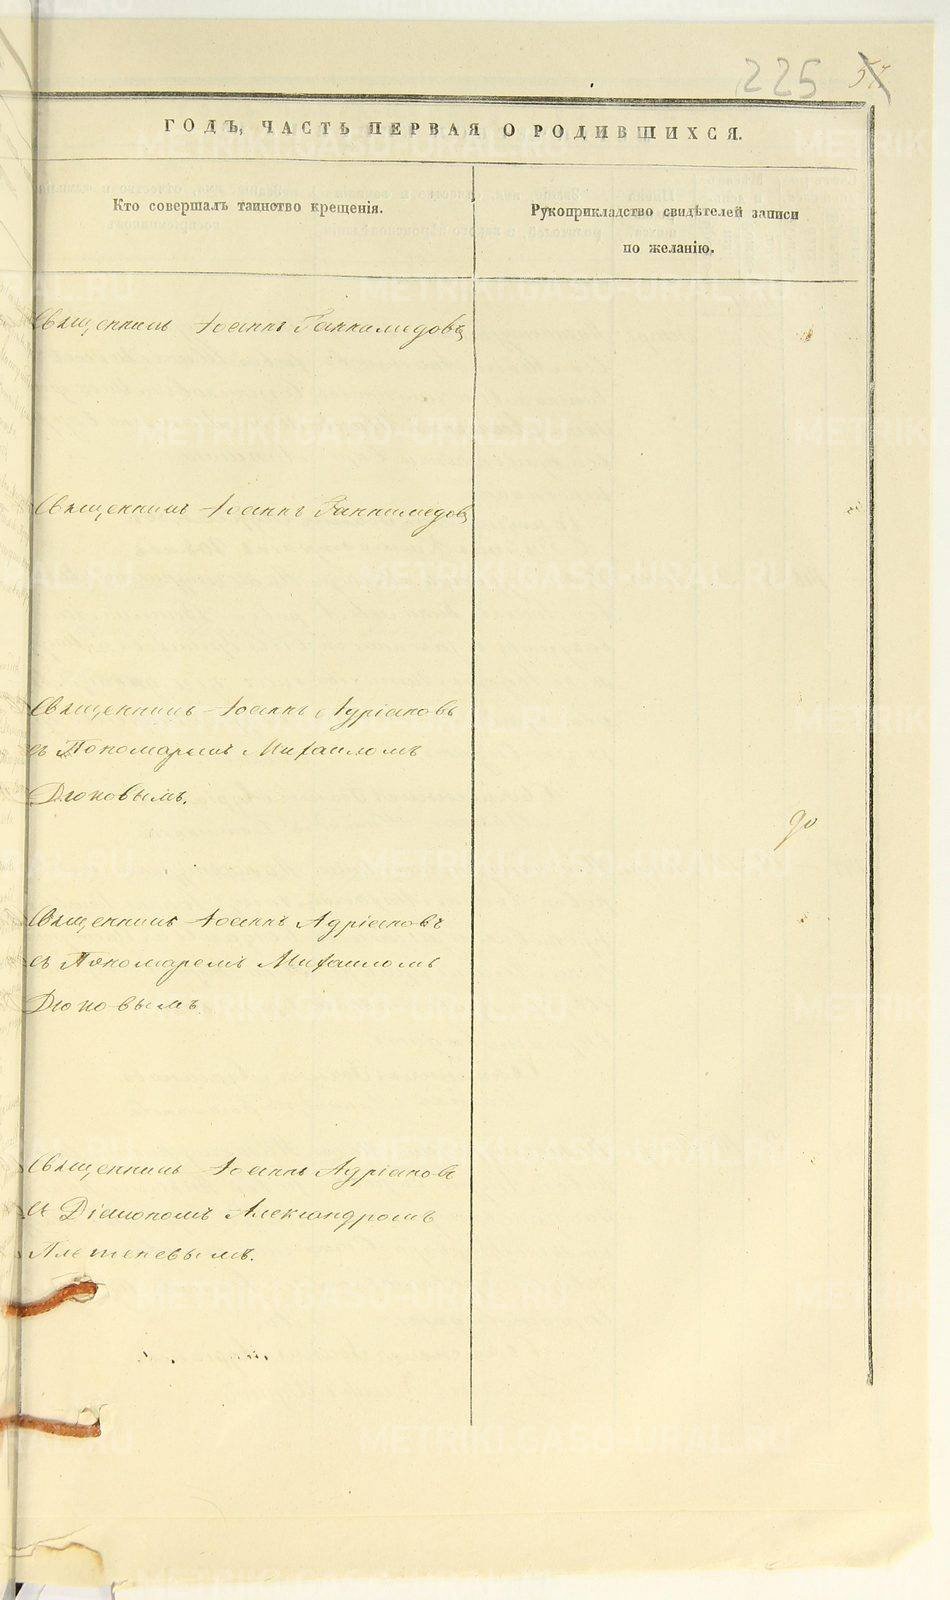 225 57
ГОДЪ, ЧАСТЬ ПЕРВАЯ О РОДИВШИХСЯ.
Кто совершалъ таинство крещенія.
Рукоприкладство свидѣтелей записи
по желанію.
Священникъ Іоаннъ
Священникъ Іоаннъ
Священникъ Іоаннъ Адріановъ
съ Пономаремъ Михаиломъ
Дюковымъ.
Священникъ Іоаннъ Адріановъ
съ Пономаремъ Михаиломъ
Дюковымъ.
Священникъ Іоаннъ Адріановъ
съ Діакономъ Александромъ
Плетеневымъ.
METRIKI.GASO-URAL.RU